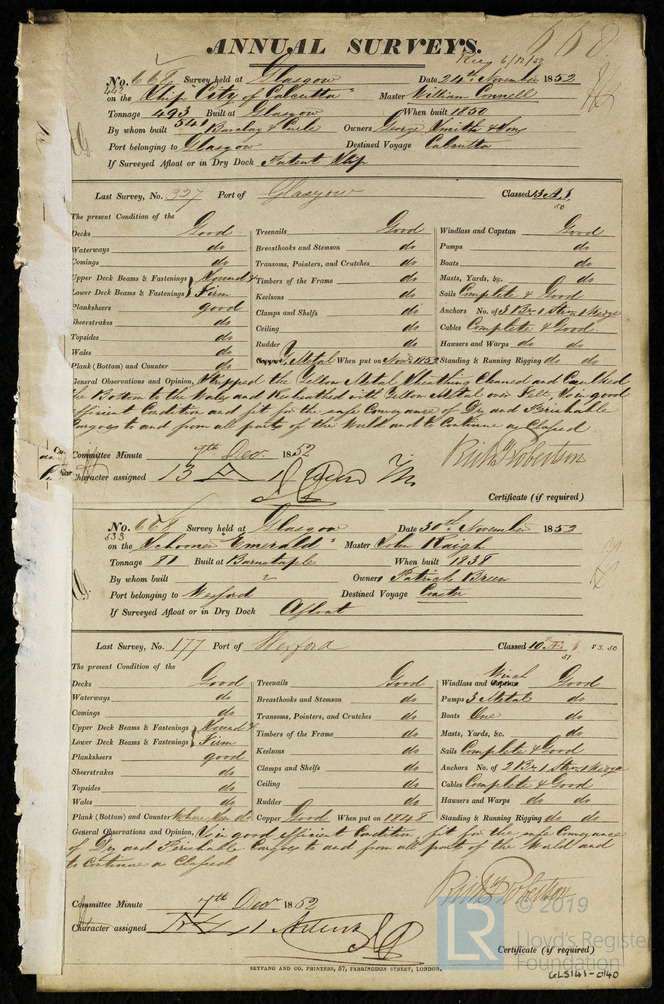 558.
ANNUAL SURVEYS.
6/12/52
No. 668 Survey held at Glasgow Date 24th November 1852
on the Ship "City of Calcutta" Master William Connell
Tonnage 493 Built at Glasgow When built 1850
541
By whom built Barclay & Curle Owners George Smith & Sons
Port belonging to Glasgow Destined Voyage Calcutta
If Surveyed Afloat or in Dry Dock Patent Slip
Last Survey, No. 327 Port of Glasgow Classed 13 A 1
50
The present Condition of the
Decks Good Treenails Good Windlass and Capstan Good
Waterways do Breasthooks and Stemson do Pumps do
Comings do Transoms, Pointers, and Crutches do Boats do
Upper Deck Beams & Fastenings } Sound & Timbers of the Frame do Masts, Yards, &c. do
Lower Deck Beams & Fastenings } Firm Keelsons do Sails Complete & Good
Planksheers good Clamps and Shelfs do Anchors No. of 3 Br 1 Strm 1 Kedge
Sheerstrakes do Ceiling do Cables Complete & Good
Topsides do Rudder do Hawsers and Warps do do
Wales do Y. Metal When put on Novr 1852 Standing & Running Rigging do do
Plank (Bottom) and Counter do
General Observations and Opinion, Stripped the Yellow Metal Sheathing Cleaned and Caulked
the Bottom to the Wales and Resheathed with Yellow Metal over Felt, Is in good
efficient Condition and fit for the safe Conveyance of Dry and Perishable
Cargoes to and from all parts of the World and to Continue as Classed
Committee Minute 7th Dec. 1852
Character assigned 13 A 1
Certificate (if required)
No. 668 Survey held at Glasgow Date 30th November 1852
533
on the Schooner "Emerald" Master John Haigh
Tonnage 81 Built at Barnstaple When built 1838
By whom built Owners Patrick Breen
Port belonging to Wexford Destined Voyage Coaster
If Surveyed Afloat or in Dry Dock Afloat
Last Survey, No. 177 Port of Wexford Classed 10
51
The present Condition of the
Decks Good Treenails Good Windlass and Winch Good
Waterways do Breasthooks and Stemson do Pumps 3 Metal do
Comings do Transoms, Pointers, and Crutches do Boats One do
Upper Deck Beams & Fastenings } Sound & Timbers of the Frame do Masts, Yards, &c. do
Lower Deck Beams & Fastenings } Firm Keelsons do Sails Complete & Good
Planksheers good Clamps and Shelfs do Anchors No. of 2 Br 1 Strm 1 Kedge
Sheerstrakes do Ceiling do Cables Complete & Good
Topsides do Rudder do Hawsers and Warps do do
Wales do Copper Good When put on 1848 Standing & Running Rigging do do
Plank (Bottom) and Counter Where seen do
General Observations and Opinion, Is in good efficient Condition, fit for the safe Conveyance
of Dry and Perishable Cargoes to and from all parts of the World and
to Continue as Classed
Committee Minute 7th Decr 1852
Character assigned
Certificate (if required)
SEYFANG AND CO. PRINTERS, 57, FARRINGDON STREET, LONDON.
LR
© 2019
Lloyd's Register
Foundation
GLS141-0140